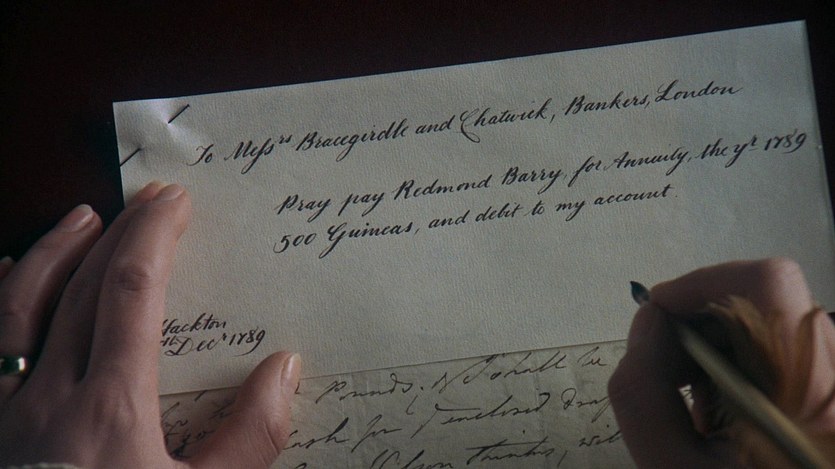 To Messrs Bracegirdle and Chatwick, Bankers, London
Pray pay Redmond Barry, for Annuity, the yr 1789
500 Guineas, and debit to my account.
Hackton
Decr 1789
Pounds, shall be
cash for enclosed
thinks,